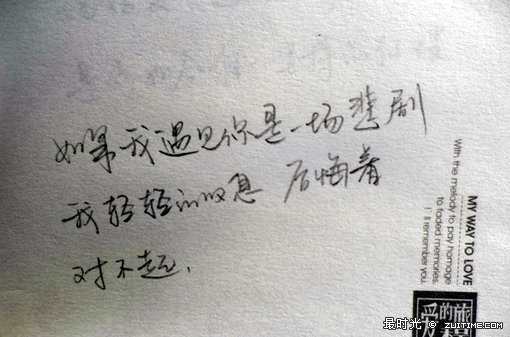 如果我遇见你是一场悲剧
我轻轻的叹息 后悔着
对不起.
MY WAY TO LOVE
With the melody to pay homage
to faded memories.
I'll remember you.
爱的旅程
最时光 © ZUITIME.COM